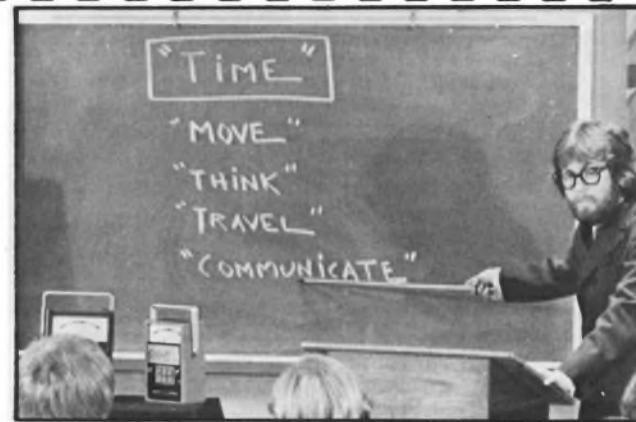 "TiME"
"MOVE"
"THiNK"
"TRAVEL"
"COMMUNiCATE"